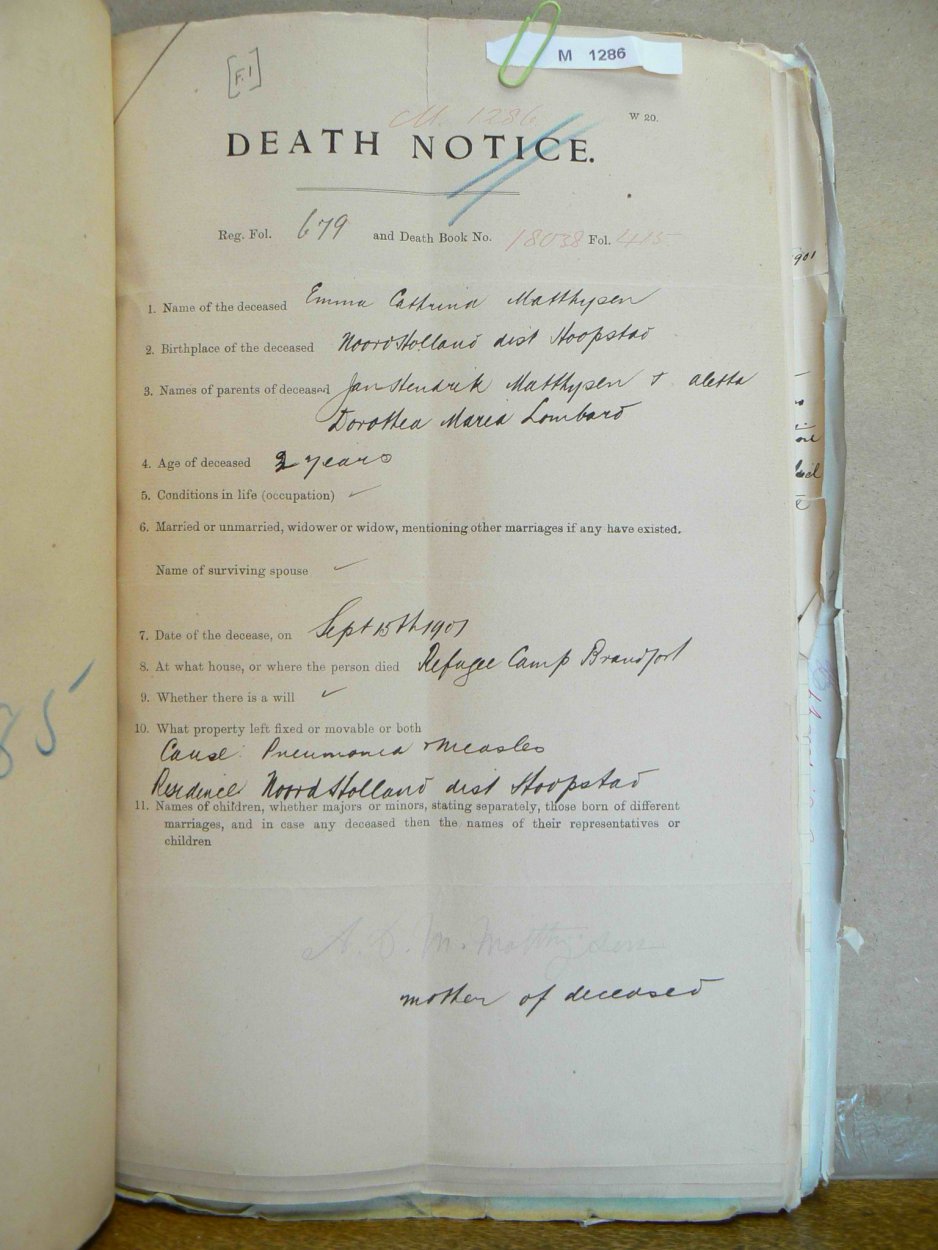 M 1286
[F.1]
M. 1286
W 20.
DEATH NOTICE.
Reg. Fol. 679 and Death Book No. 18038 Fol. 415
1. Name of the deceased Emma Cathrina Matthysen
2. Birthplace of the deceased Noord Holland dist Hoopstad
3. Names of parents of deceased Jan Hendrik Matthysen & Aletta
Dorothea Maria Lombard
4. Age of deceased 2 years
5. Conditions in life (occupation) ✓
6. Married or unmarried, widower or widow, mentioning other marriages if any have existed.
Name of surviving spouse ✓
7. Date of the decease, on Sept 15th 1901
8. At what house, or where the person died Refugee Camp Brandfort
9. Whether there is a will ✓
10. What property left fixed or movable or both
Cause: Pneumonia & Measles
Residence Noord Holland dist Hoopstad
11. Names of children, whether majors or minors, stating separately, those born of different
marriages, and in case any deceased then the names of their representatives or
children
A. D. M. Matthysen
mother of deceased
85
901